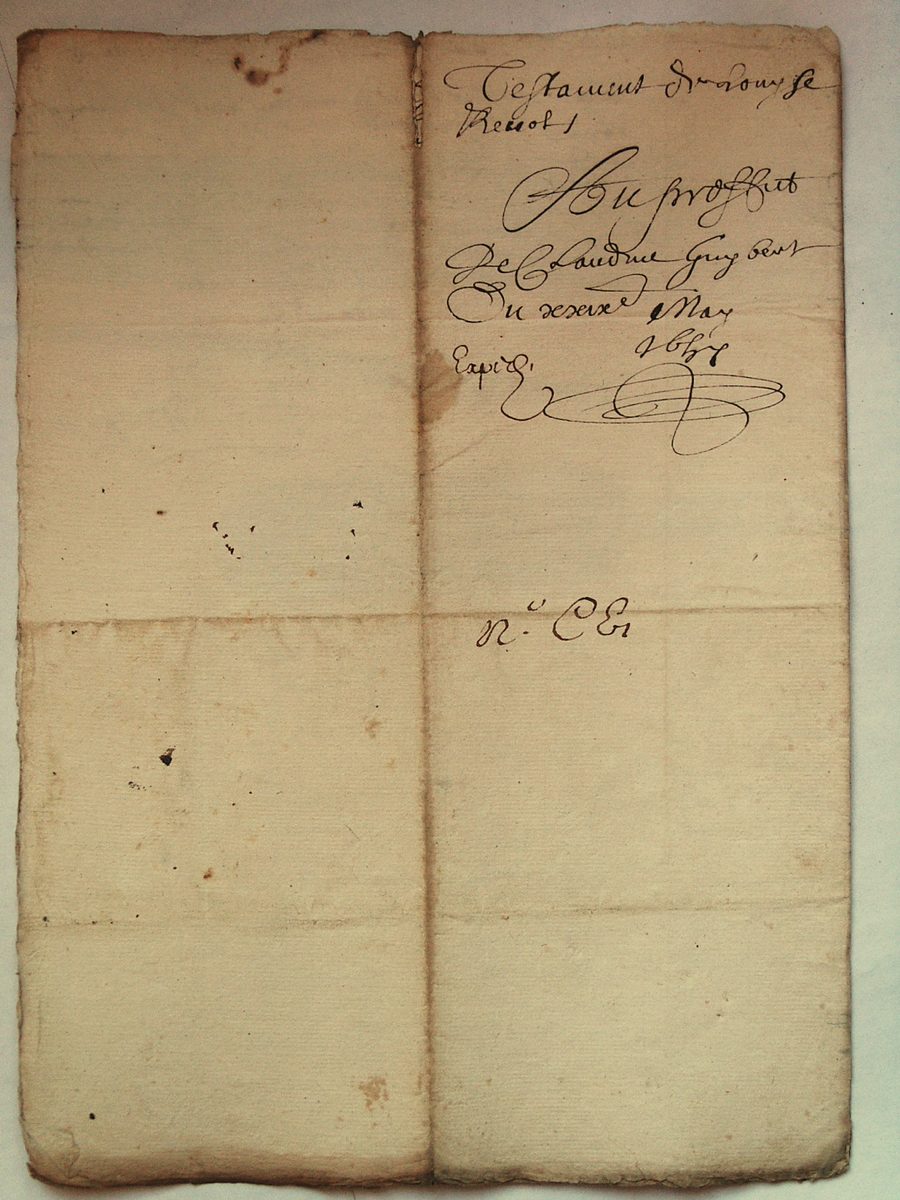 Testament de Louyse
Revot
Au proffict
De Claudine Guybert
Du xxixe May
Expéd.
No. CE